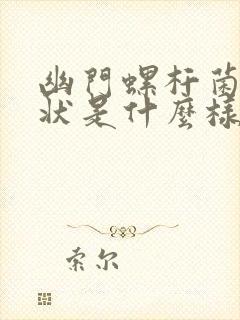 幽門螺杆菌
狀是什麼樣
索尔